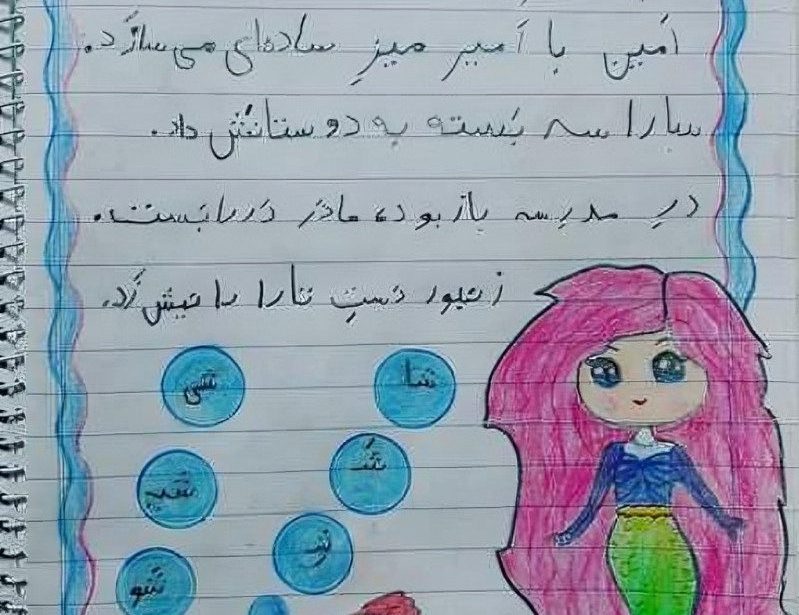 اَمین با اَمیر میزِ ساده‌ای می سازَد.
سارا سه بَسته به دوستانَش داد.
درِ مدرسه باز بود، مادَر دَر را بَست.
زنبور دَستِ تارا را نیش زَد.
شا
شی
شَـ
شو